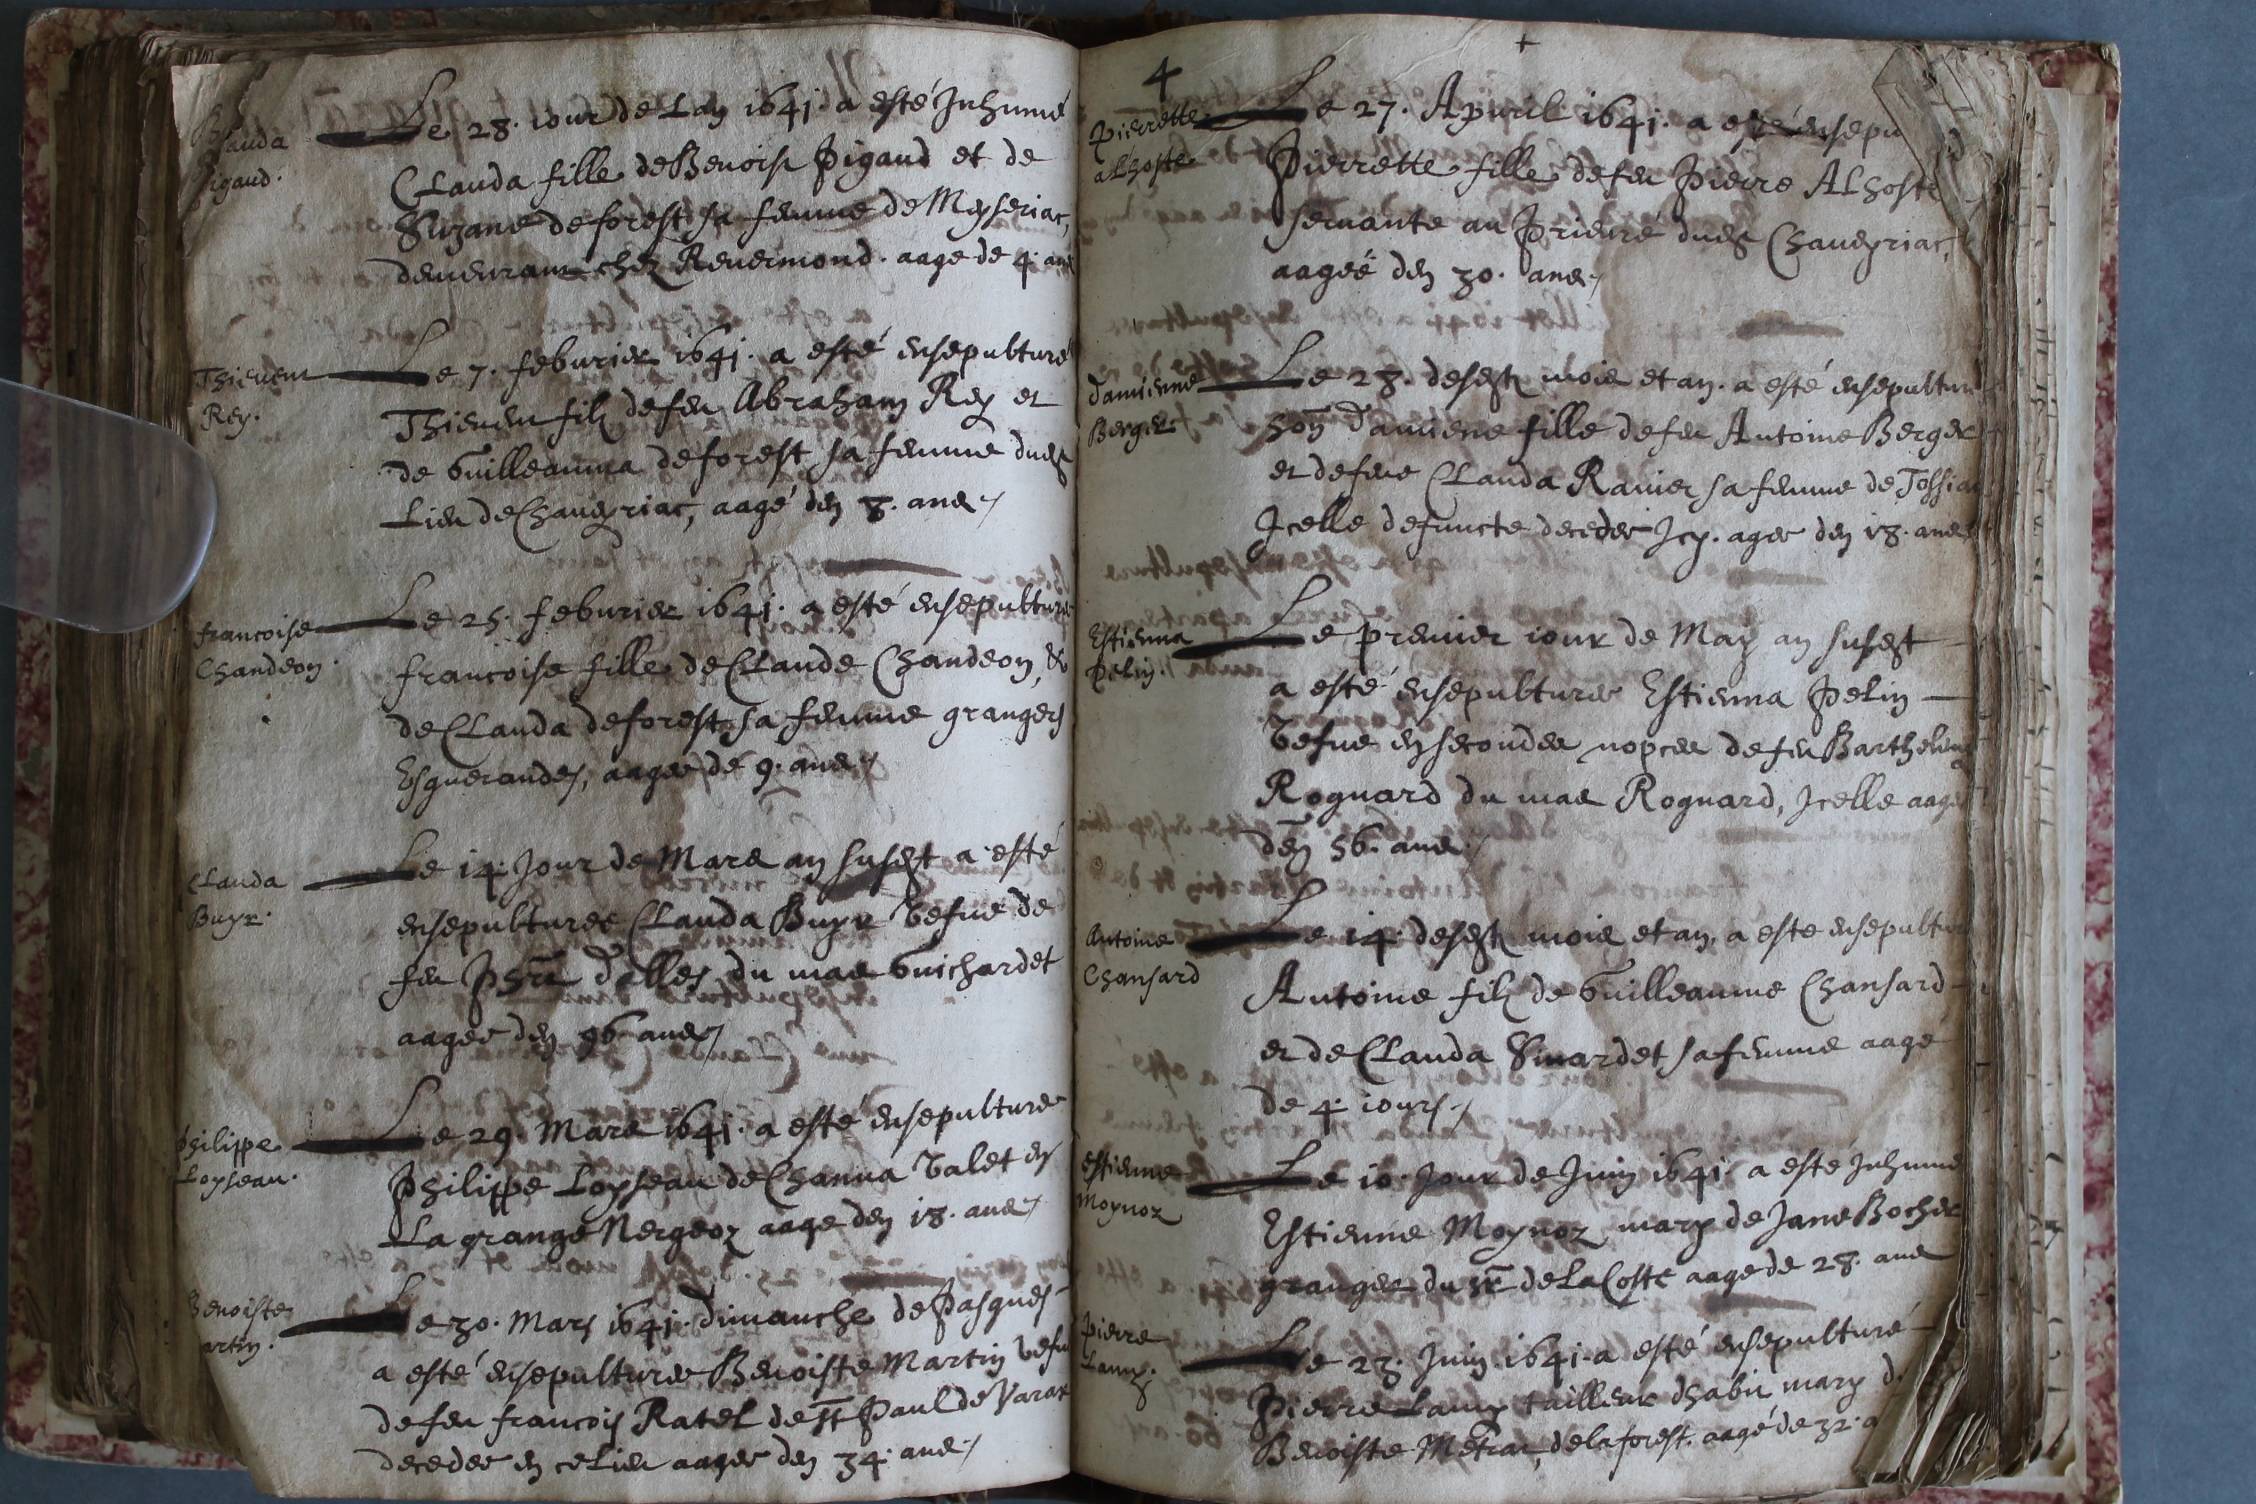 Clauda
Pigaud.
Le 28. iour de Lan 1641. a esté Inhumé
Clauda fille de Benoist Pigaud et de
Suzane deforest sa femme de Meyseriac,
demeurant chez Reuermond. aage de 4. ans
Thieuent
Rey.
Le 7. feburier 1641. a esté ensepulturé
Thieuent filz de feu Abraham Rey et
de Guilleauma deforest sa femme dudt
Lieu de Chaueyriac, aagé den 8. ans
francoise
Chandeon.
Le 25. feburier 1641. a esté ensepulturee
francoise fille de Claude Chandeon, &
de Clauda deforest sa femme grangers
Esguerandes, aagee de 9. ans
Clauda
Buyr.
Le 14. Jour de Mars an susdt a esté
ensepulturee Clauda Buyr Vefue de
feu du mas Guichardet
aagee den 96 ans
Philippe
Loyseau.
Le 29. Mars 1641. a esté ensepulture
Philippe Loyseau de Channa Valet en
La grange Nergeoz aage den 18. ans
Benoiste
artin.
Le 30. Mars 1641. dimanche de Pasques
a esté ensepulturee Benoiste Martin Vefue
de feu francois Ratel de St Paul de Varax
decedee en ce Lieu aagee den 34. ans
4
Pierrette
alhoste
Le 27. Apuril 1641. a esté ensepu
Pierrette fille de feu Pierre Alhoste
seruante au Prieuré dudt Chaueyriac,
aageé den 30. ans
damienne
Berger
Le 28. desdt mois et an. a esté ensepulture
hon Damiene fille de feu Antoine Berger
et de feue Clauda Rauier sa femme de Tossiat
Icelle defuncte decedee Icy. agee den 18. ans
Estienna
Pelin.
Le premier iour de May an susdt
a esté ensepulturee Estienna Pelin
Vefue en secondes nopces de feu Barthelemy
Roguard du mas Roguard, Icelle aagee
den 56. ans
Antoine
Chansard
Le 14. desdt mois et an, a este ensepulture
Antoine filz de Guilleaume Chansard
et de Clauda Sinardet sa femme aagé
de 4. iours
Estienne
Moynoz
Le 10. Jour de Juin 1641. a esté Inhumé
Estienne Moynoz mary de Jane Bocher
granger du sr de La Coste aage de 28. ans
Pierre
Lamy.
Le 23. Juin 1641. a esté ensepulturé
Pierre Lamy tailleur dhabit mary d
Benoiste Metrat, de la forest. aagé de 32. a